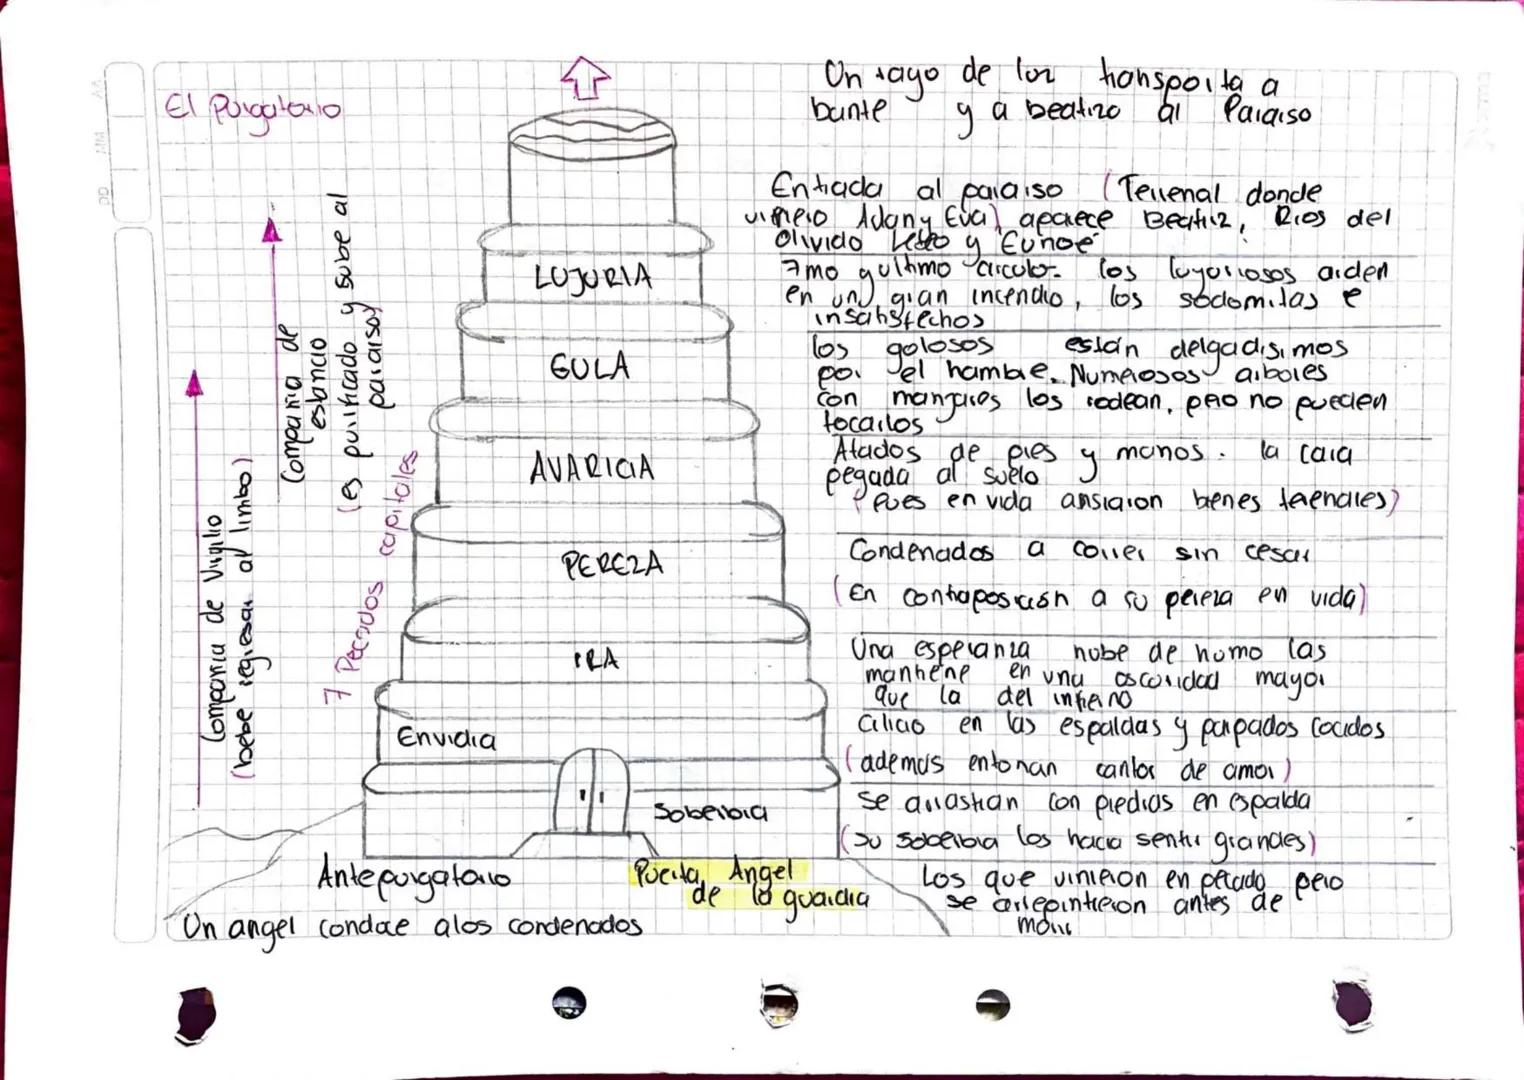 El Purgatorio
Un rayo de luz transporta a
Dante y a Beatriz al Paraiso
Entrada al paraiso (Terrenal donde
vivieron Adan y Eva) aparece Beatriz, Rios del
olvido Leteo y Eunoe
7mo y ultimo circulo- los lujoriosos arden
en un gran incendio, los sodomitas e
insatisfechos
los golosos están delgadisimos
por el hambre. Numerosos arboles
con manjares los rodean, pero no pueden
tocarlos
Atados de pies y manos. la cara
pegada al suelo
(Pues en vida ansiaron bienes terenales)
Condenados a correr sin cesar
(En contraposición a su pereza en vida)
Una esperanza nube de humo las
mantiene en una oscuridad mayor
que la del infierno
Cilicio en las espaldas y parpados cocidos
(ademas entonan cantos de amor)
Se arrastran con piedras en espalda
(Su soberbia los hacia sentir grandes)
Los que vinieron en pecado, pero
se arrepintieron antes de
morir
LUJURIA
GULA
AVARICIA
PEREZA
IRA
Envidia
Soberbia
Antepurgatorio
Puerta, Angel
de la guardia
Un angel condoce alos condenados
7 Pecados capitales
Compania de
estancio
(es purificado y sube al
paraiso)
Compania de Virgilio
(bebe regresar al limbo)
DD
MM
AA